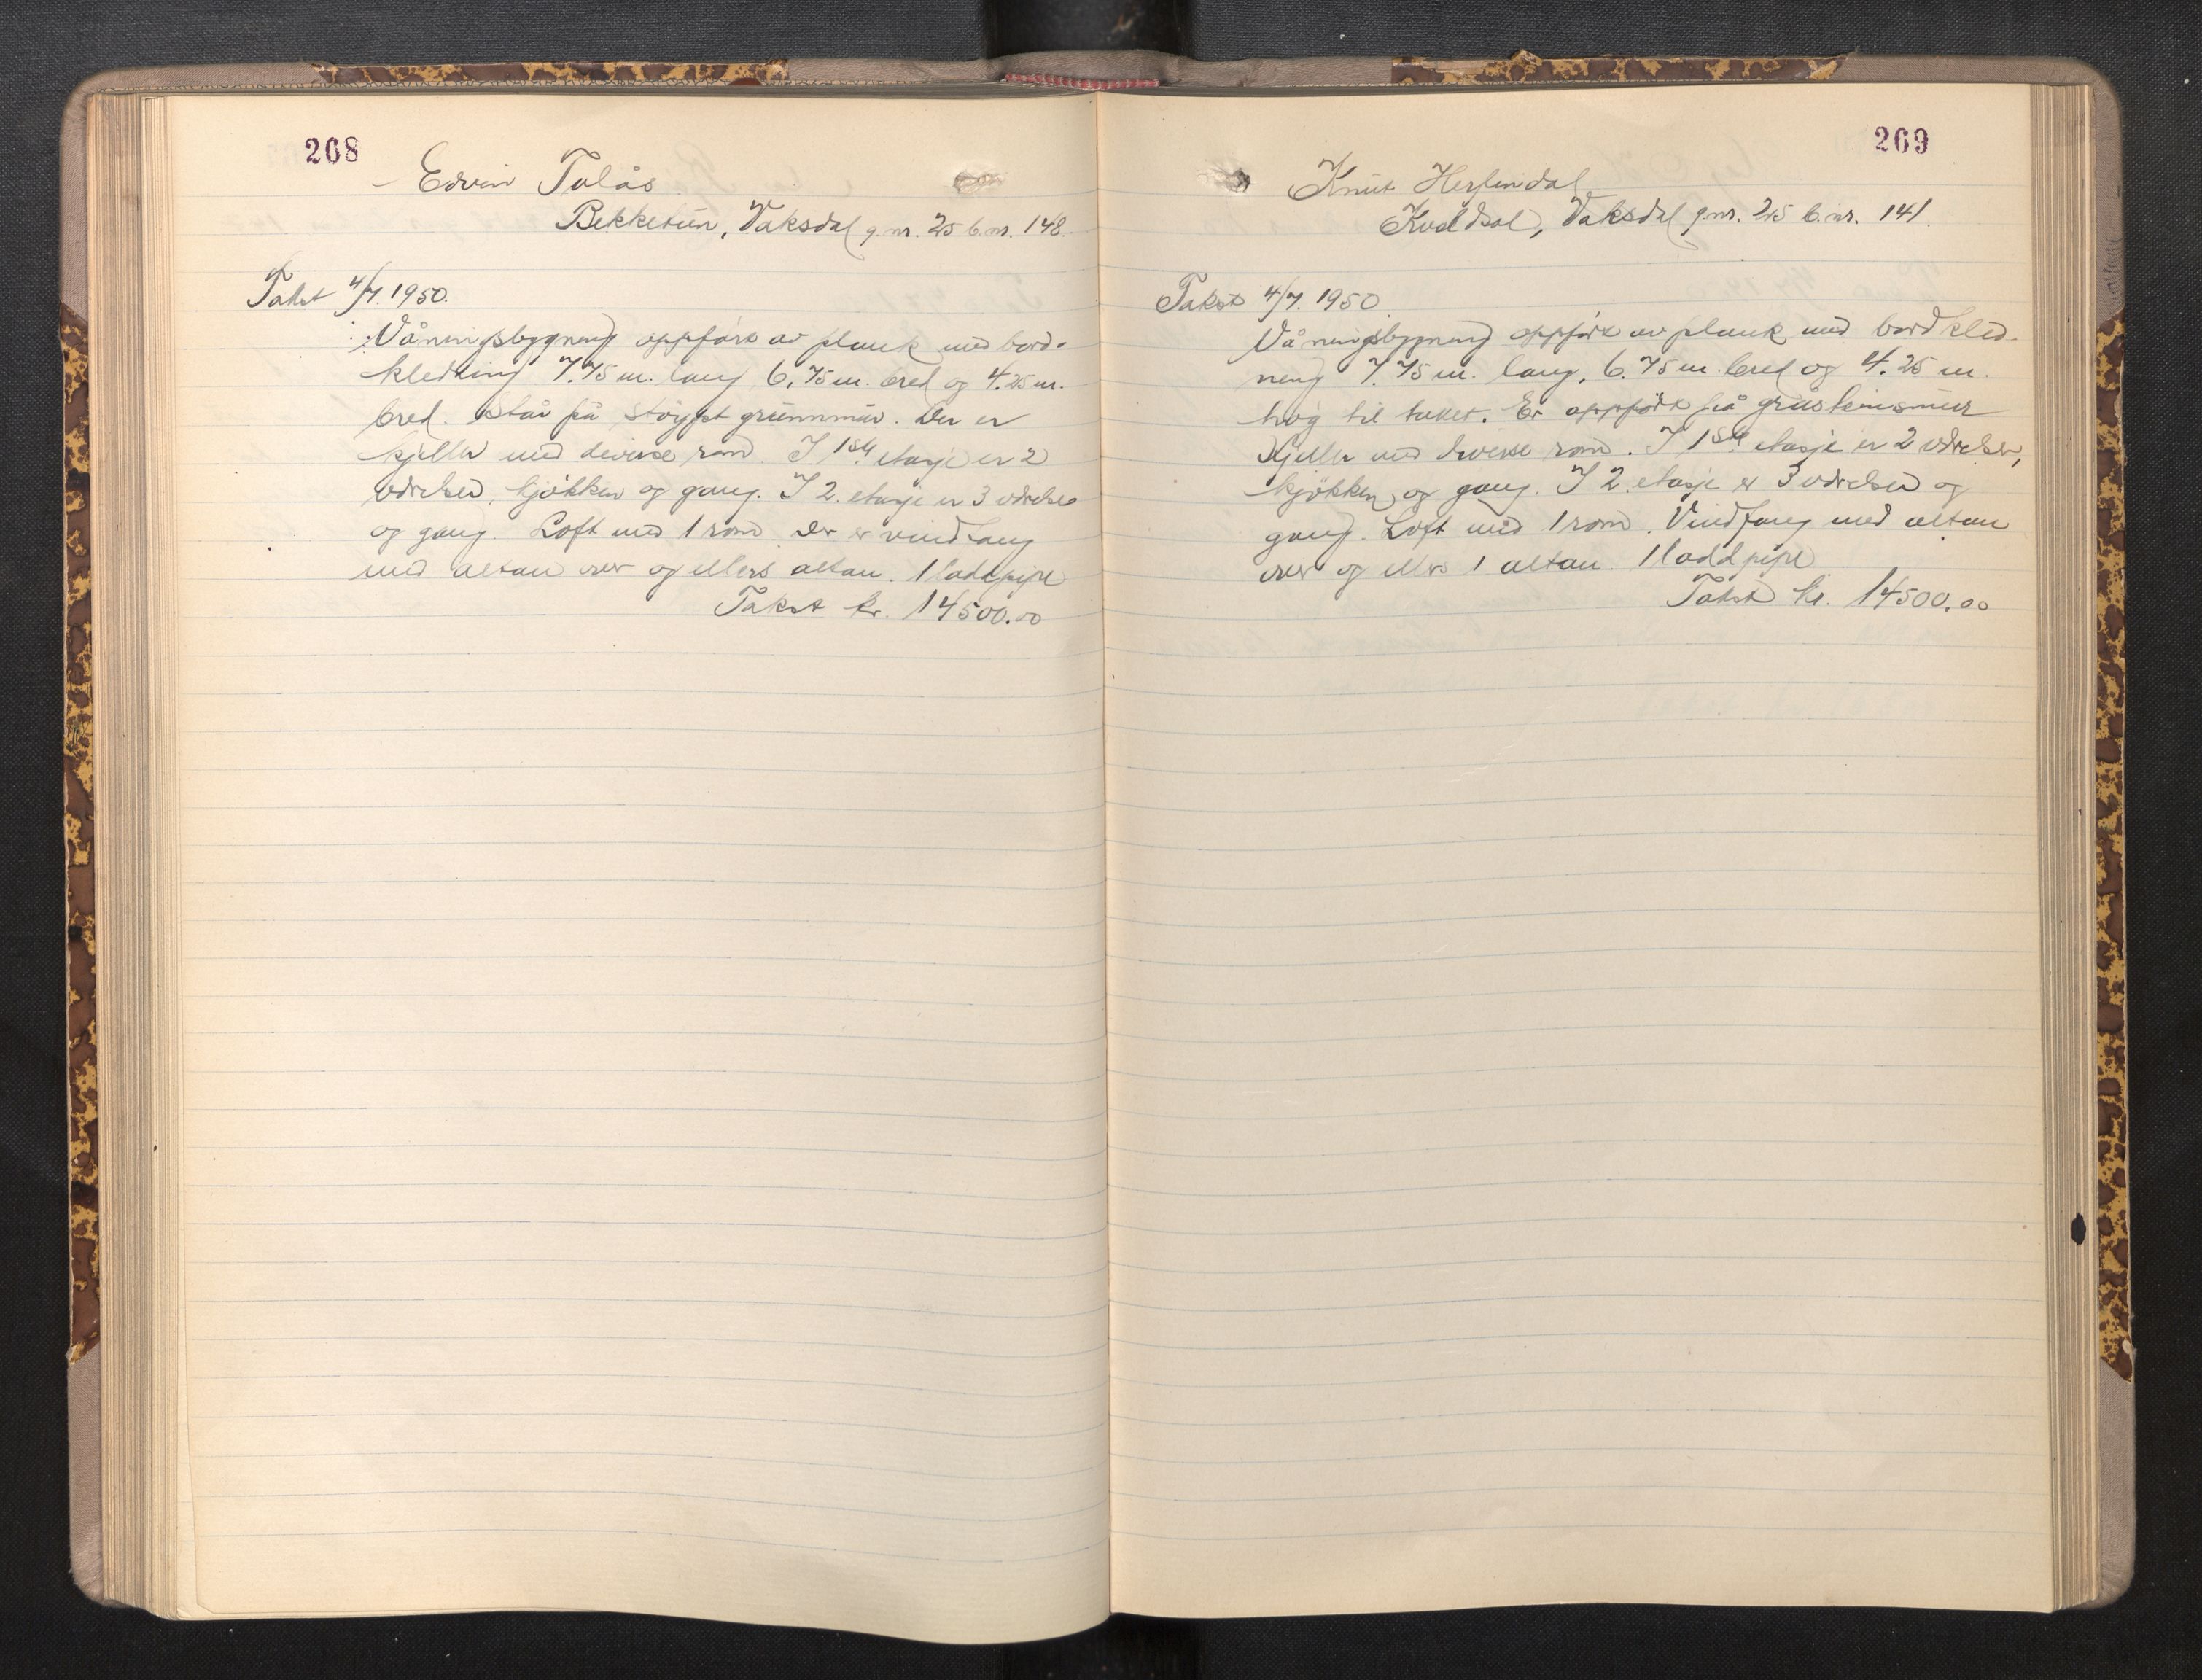 268
Edvin Tolås
Bekketun, Vaksdal g.nr. 25 b.nr. 148.
Takst 4/7. 1950.
Våningsbygning oppført av plank med bord-
kledning 7.75 m. lang 6,75 m. bred og 4.25 m.
bred. Står på støypt grunnmur. Der er
kjeller med diverse rom. I 1ste etasje er 2
værelser, kjøkken og gang. I 2. etasje er 3 værelser
og gang. Loft med 1 rom. Der er vindfang
med altan over og ellers altan. 1 lodd pipe
Takst kr. 14500.00
269
Knut Herfindal
Kveldsol, Vaksdal g.nr. 25 b.nr. 141.
Takst 4/7. 1950.
Våningsbygning oppført av plank med bordkled-
ning 7.75 m. lang, 6.75 m. bred og 4.25 m.
høg til taket. Er oppført på gråsteinsmur
Kjeller med diverse rom. I 1ste etasje er 2 værelser,
kjøkken og gang. I 2. etasje er 3 værelser og
gang. Loft med 1 rom. Vindfang med altan
over og ellers 1 altan. 1 lodd pipe
Takst kr. 14500.00